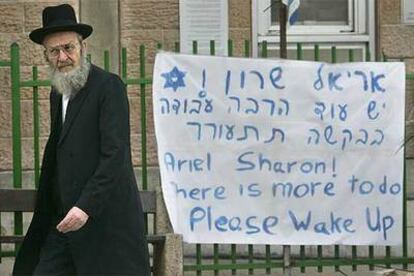 אריאל שרון !
יש עוד הרבה עבודה
בבקשה תתעורר
Ariel Sharon!
There is more to do
Please Wake Up